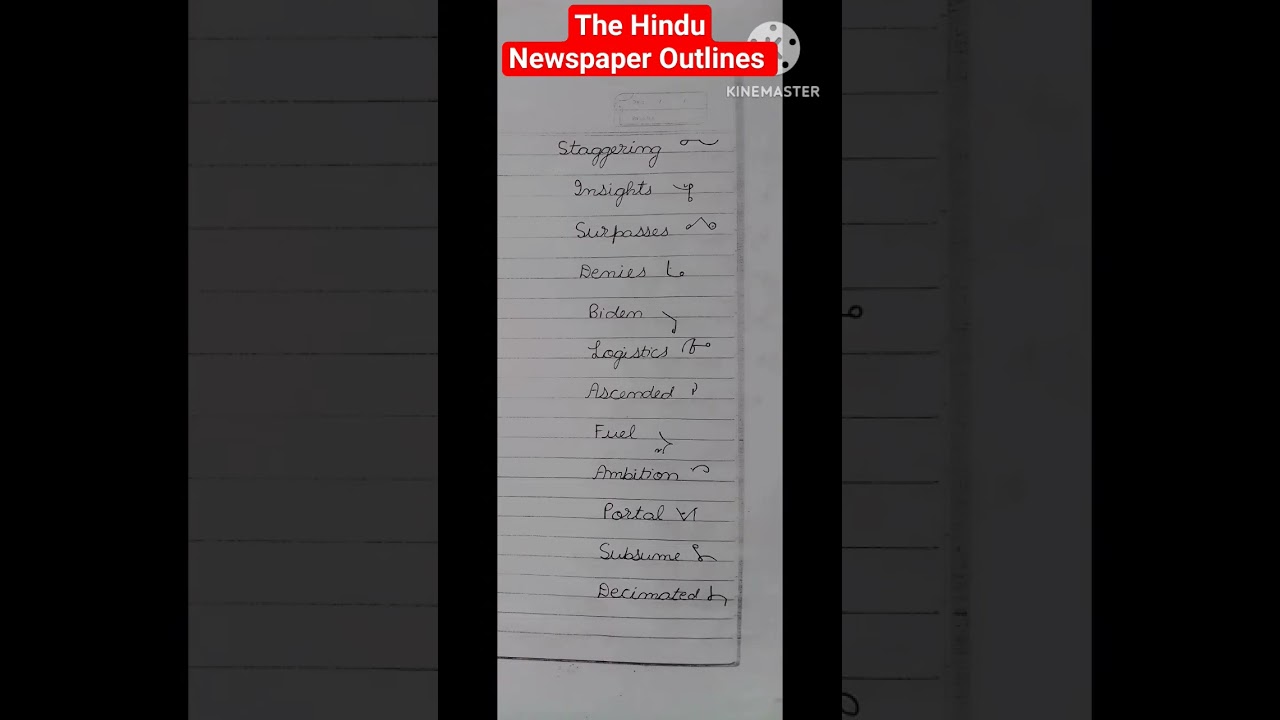 The Hindu
Newspaper Outlines
KINEMASTER
Staggering
Insights
Surpasses
Denies
Biden
Logistics
Ascended
Fuel
Ambition
Portal
Subsume
Decimated